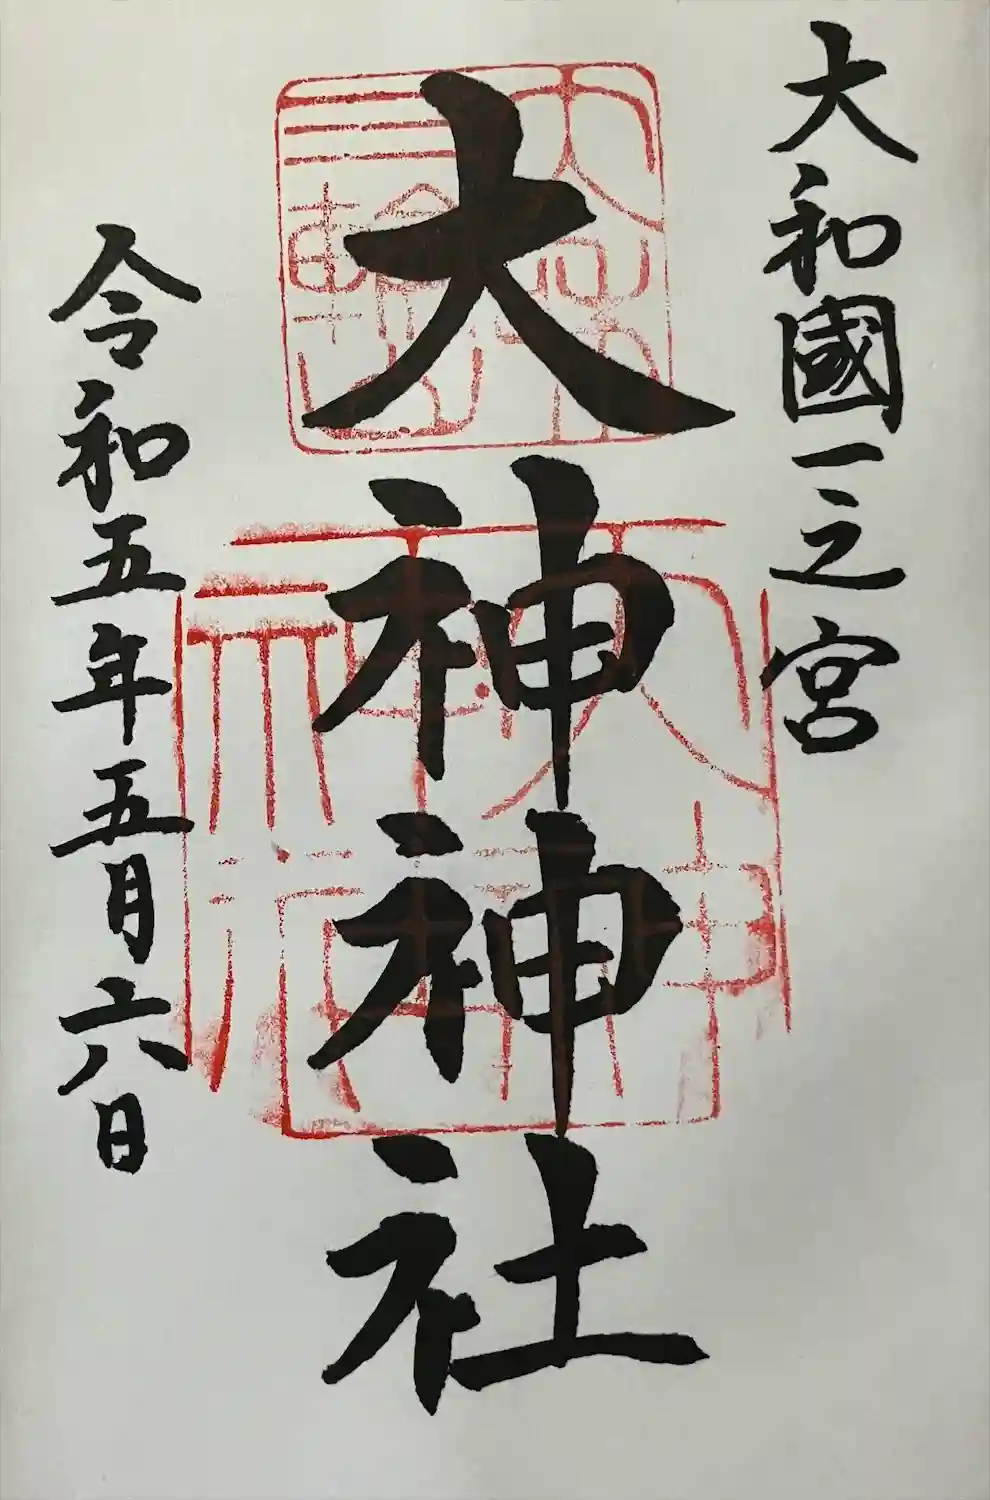 大和國一之宮
大神神社
令和五年五月六日